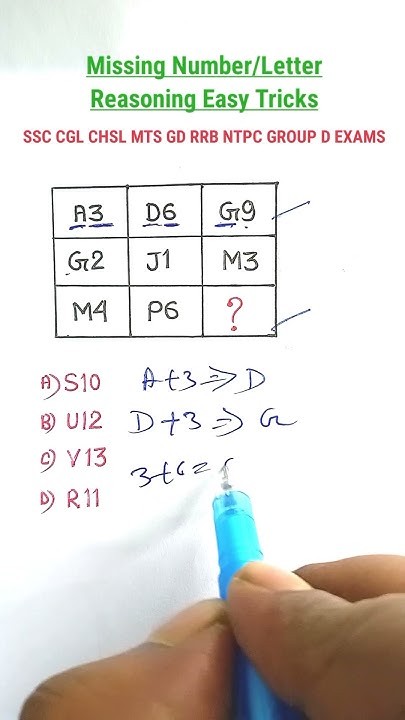 Missing Number/Letter
Reasoning Easy Tricks
SSC CGL CHSL MTS GD RRB NTPC GROUP D EXAMS
A3 D6 G9
G2 J1 M3
M4 P6 ?
A) S10 A+3 ⇒ D
B) U12 D+3 ⇒ G
C) V13
3+6=
D) R11